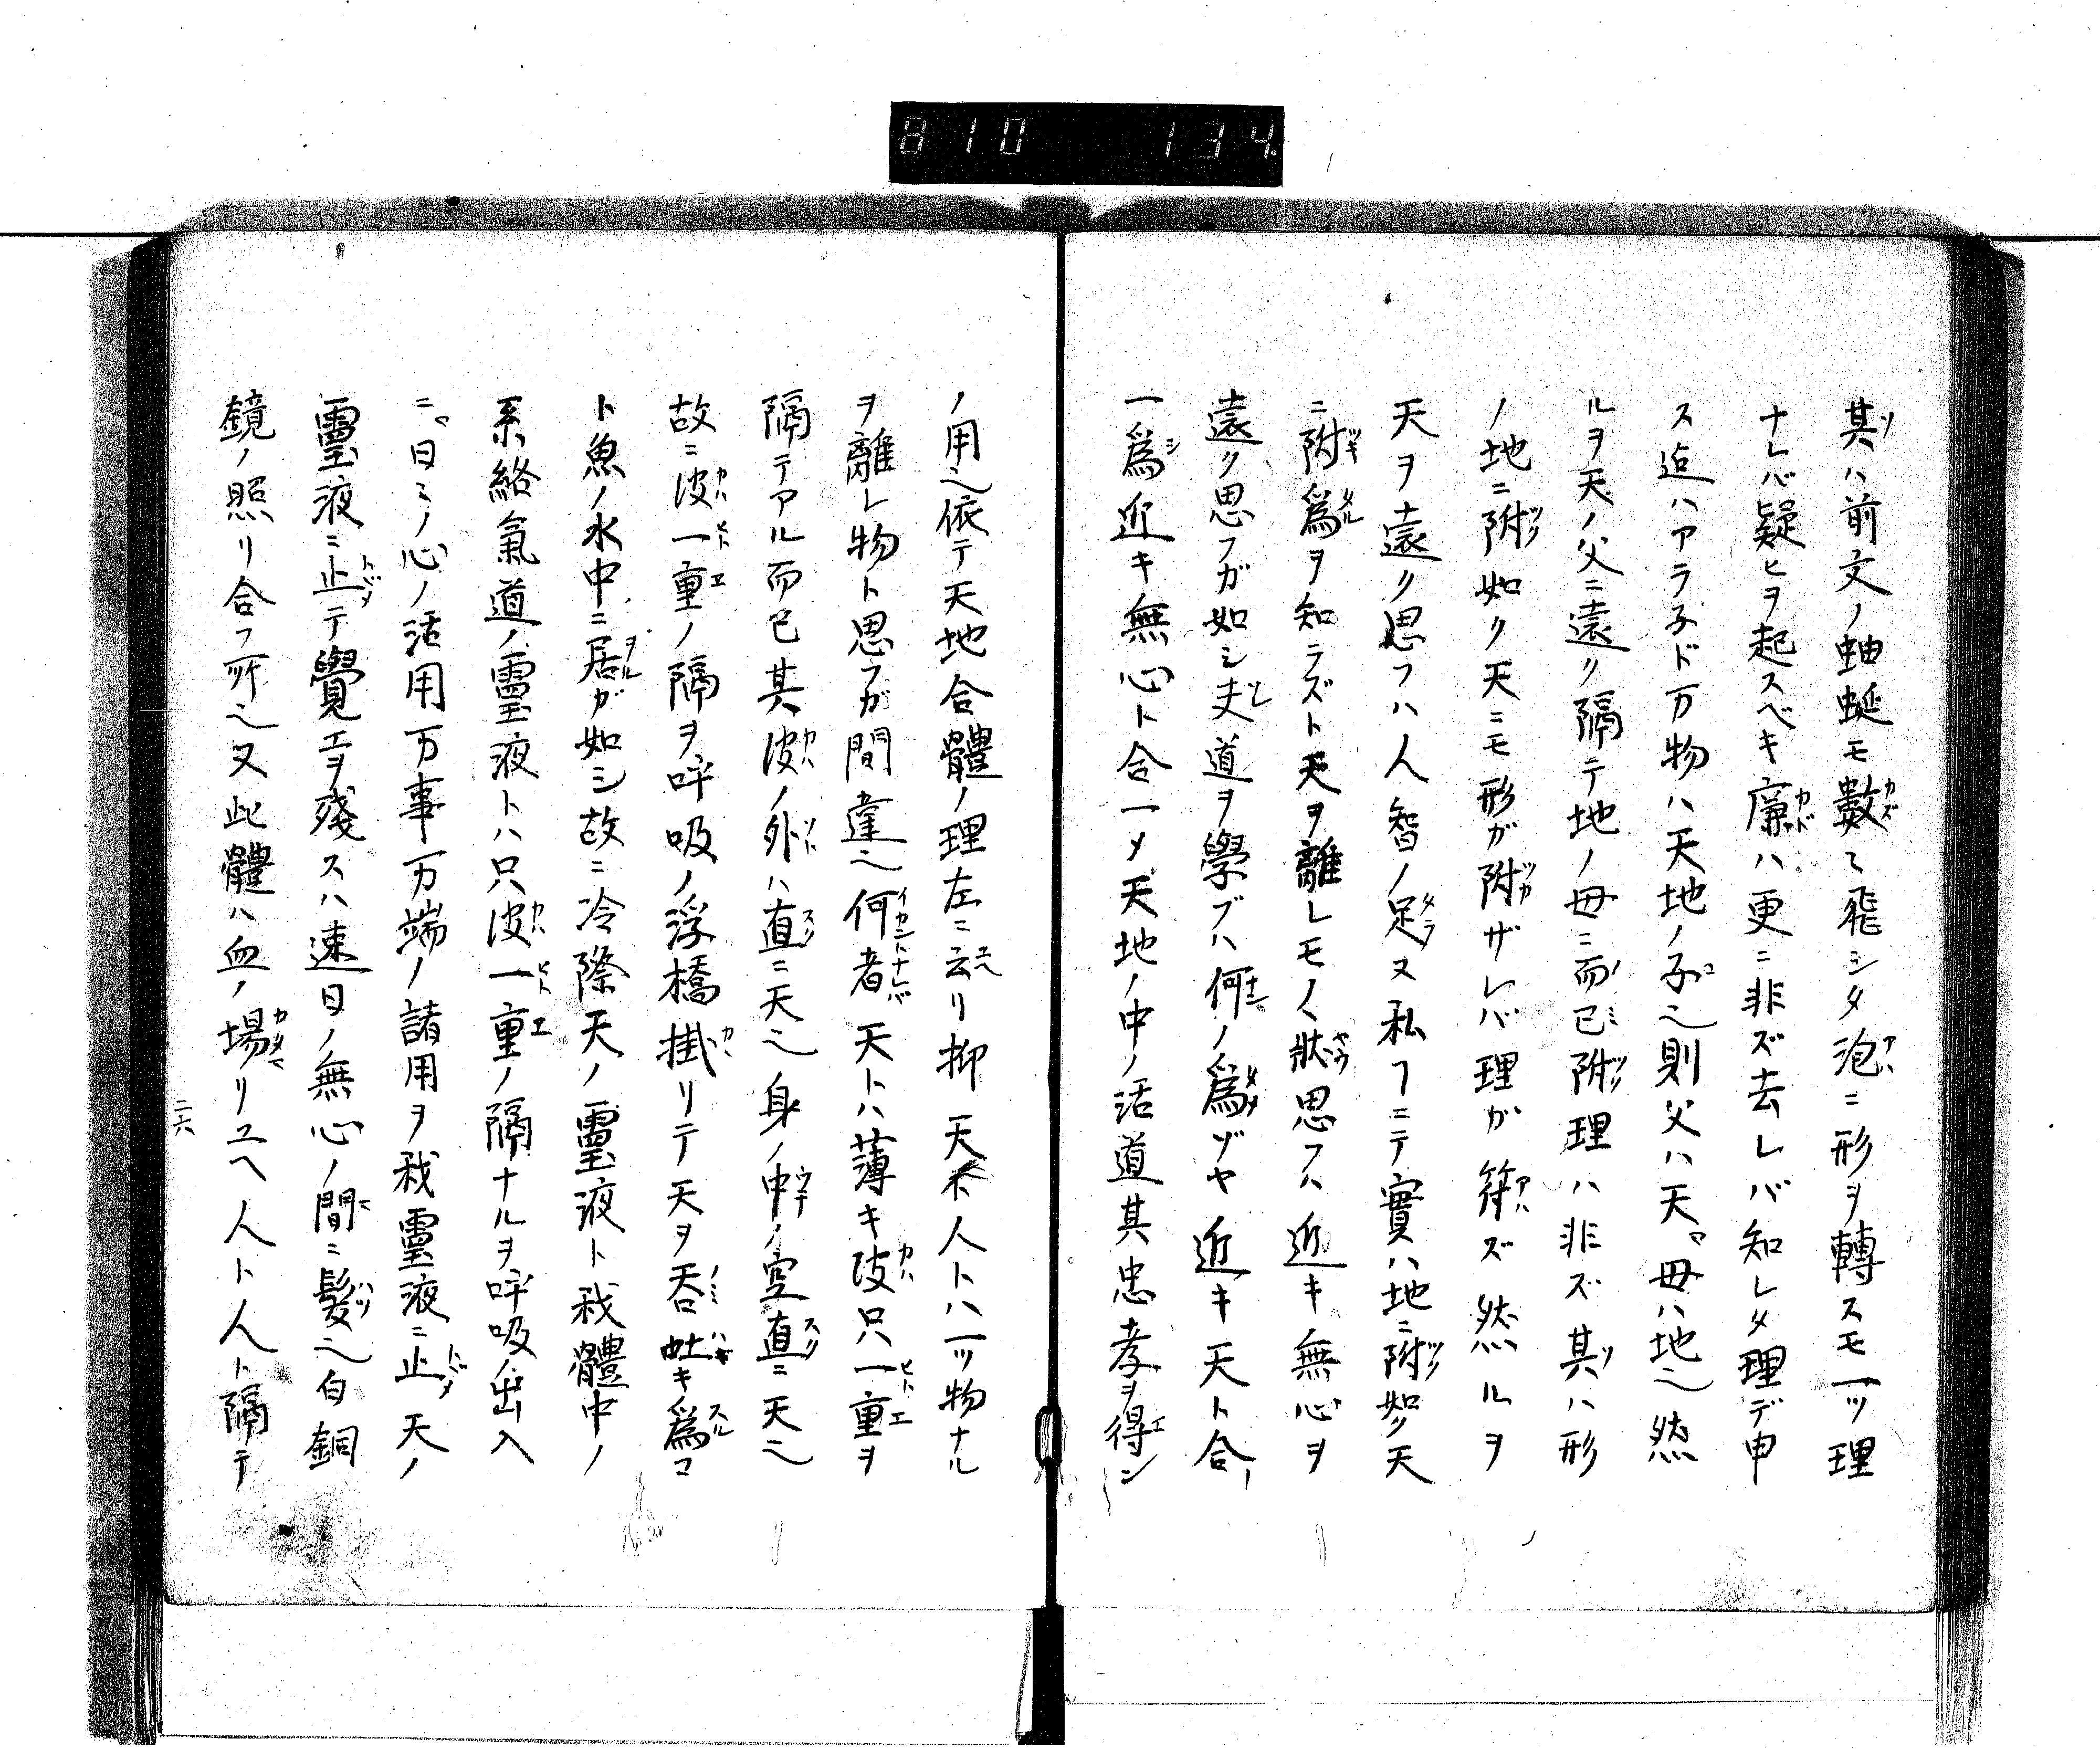 810 134
其ハ前文ノ蚰蜒モ數〻飛シタ泡ニ形ヲ轉スモ一ッ理
ナレバ疑ヒヲ起スベキ廉ハ更ニ非ズ去レバ知レタ理デ申
ス迠ハアラ子ド万物ハ天地ノ子也則父ハ天、母ハ地也然
ルヲ天ノ父ニ遠ク隔テ地ノ母ニ而已附理ハ非ズ其ハ形
ノ地ニ附如ク天ニモ形ガ附ザレバ理ガ符ズ然ルヲ
天ヲ遠ク思フハ人智ノ足ヌ私ヿニテ實ハ地ニ附如ク天
ニ附爲ヲ知ラズト天ヲ離レモノヽ狀思フハ近キ無心ヲ
遠ク思フガ如シ夫道ヲ學ブハ何ノ爲ゾヤ近キ天ト合
一爲近キ無心ト合一〆天地ノ中ノ活道其忠孝ヲ得ン
ノ用也依テ天地合體ノ理左ニ云リ抑天ト人トハ一ッ物ナル
ヲ離レ物ト思フガ間違也何者天トハ薄キ皮只一重ヲ
隔テアル而已其皮ノ外ハ直ニ天也身ノ中ノ空直ニ天也
故ニ皮一重ノ隔ヲ呼吸ノ浮橋掛リテ天ヲ呑吐キ爲ヿ
ト魚ノ水中ニ居ガ如シ故ニ冷際天ノ靈液ト我體中ノ
系絡氣道ノ靈液トハ只皮一重ノ隔ナルヲ呼吸ノ出入
ニ、日〻ノ心ノ活用万事万端ノ諸用ヲ我靈液ニ止天ノ
靈液ニ止テ覺エヲ殘スハ速日ノ無心ノ間ニ髮也白銅
鏡ノ照リ合フ所也又此體ハ血ノ塲リユヘ人ト人ト隔テ
二六